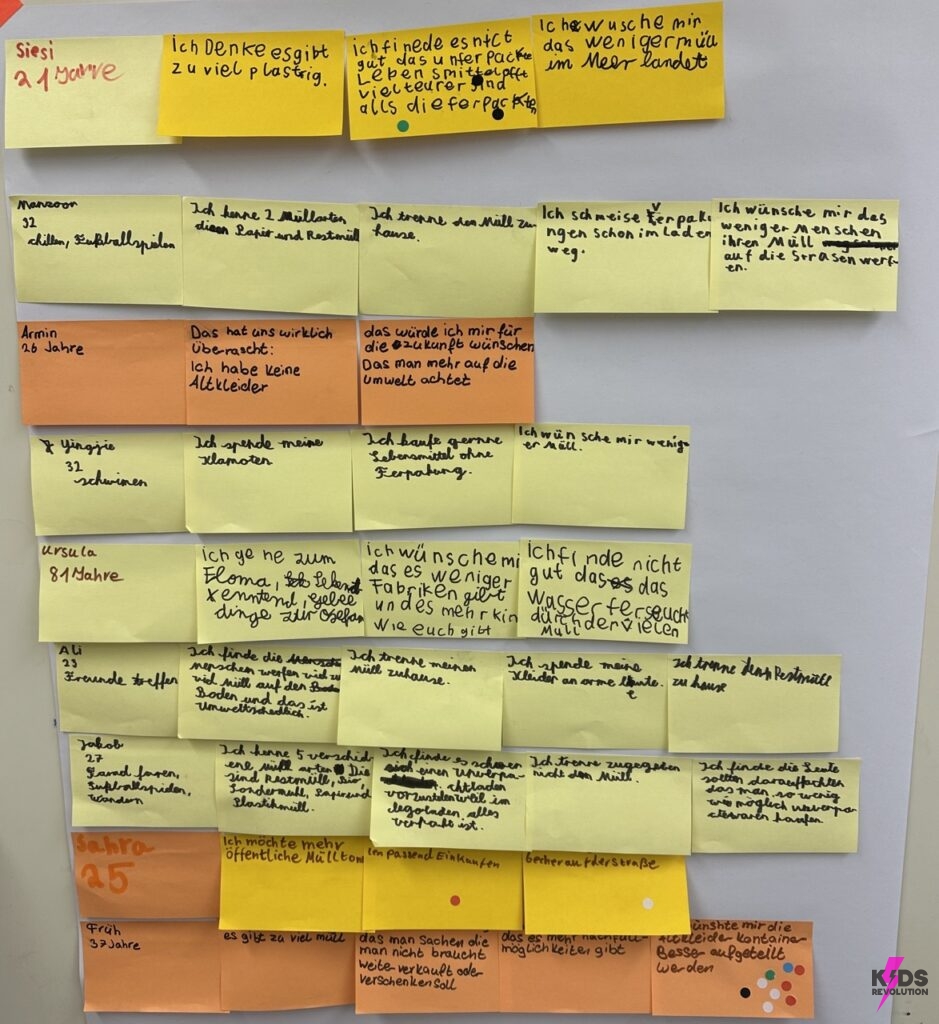 Siesi
21 Jahre
ich Denke es gibt
zu viel plastrig.
ich finede es nict
gut das unferpackte
Leben smittel pfft
vielteurer sind
alls die ferpackten
Ich wusche mir
das weniger müll
im Meer landet
Manzoor
32
chillen, Fußballspielen
Ich kenne 2 Müllarten
diesen Papir und Restmüll
Ich trenne den Müll zu
hause.
Ich schmeise Verpaku
ngen schon im laden
weg.
Ich wünsche mir das
weniger Menschen
ihren Müll
auf die Strasen werf
en.
Armin
26 Jahre
Das hat uns wirklich
überascht:
Ich habe keine
Altkleider
das würde ich mir für
die zukunft wünschen
Das man mehr auf die
Umwelt achtet
Yingjie
32
schwimen
Ich spende meine
Klamoten
Ich kaufe gernne
Lebensmittel ohne
Ferpakung.
Ich wün sche mir wenig
er Müll.
Ursula
81 Jahre
ich ge he zum
Floma,
dinge zur
ich wünsche mi
das es weniger
Fabriken gibt
und es mehr kin
wie euch gibt
ich finde nicht
gut das das
wasser ferseucht
durch der vielen
Müll
Ali
23
Freunde treffen
Ich finde die
menschen werfen viel zu
viel Müll auf den
Boden und das ist
Umweltschedlich.
Ich trenne meinen
Müll zuhause.
Ich spende meine
Kleider an arme Leute.
Ich trenne den Restmüll
zu hause
Jakob
27
Farad faren,
Fußballspielen,
wandern
Ich kenne 5 verschid
ene Müll arten Die
sind Restmüll, Bio
Sondermühl, Papir und
Plastikmüll.
Ich finde es schwer
sich einen Unverpa
chtladen
vorzustelen weil im
legoladen, alles
verpakt ist.
Ich trenne zugegeben
nicht den Müll.
Ich finde die Leute
sollten darauf achten
das man so wenig
wie möglich
kaufen
Sahra
25
Ich möchte mehr
öffentliche Müllton
im passend Einkaufen
becher auf der Straße
Früh
37 Jahre
es gibt zu viel müll
das man Sachen die
man nicht braucht
weiter verkauft oder
verschenken soll
das es mehr nachfüll-
möglichkeiten gibt
wünshte mir die
Altkleider kontainer
Besser aufgestellt
werden
KIDS
REVOLUTION